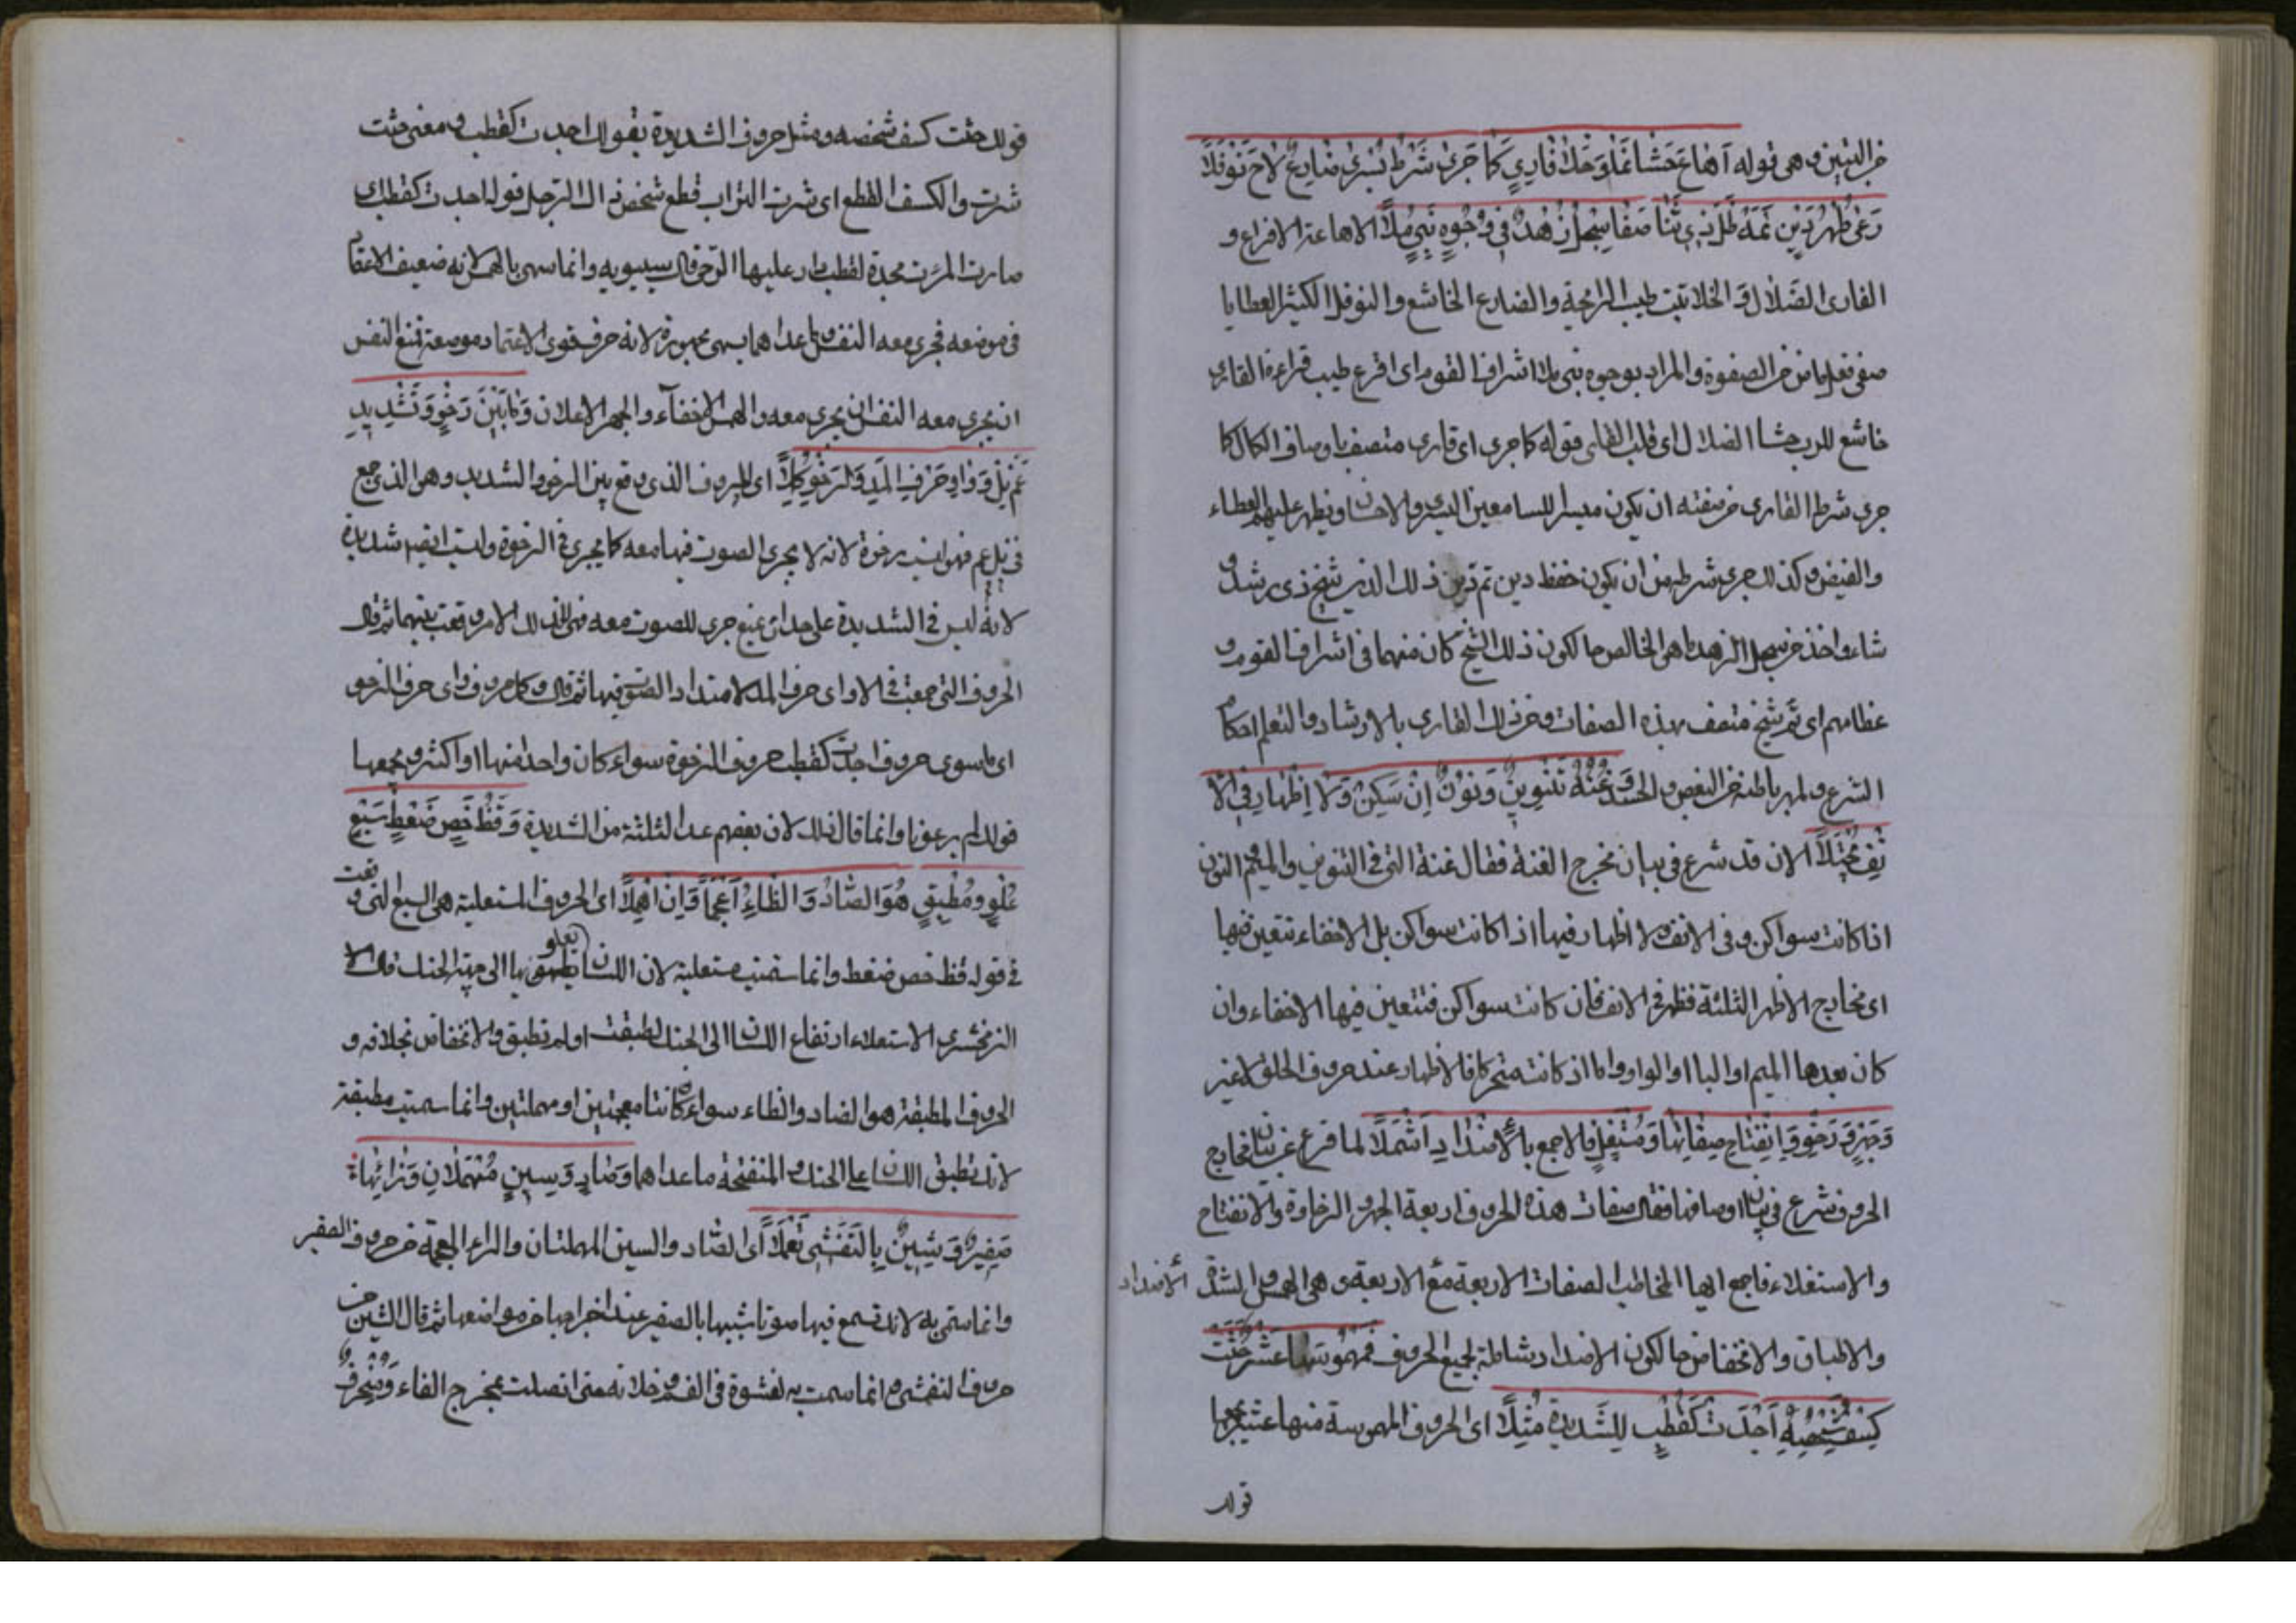 من البيتين وهي قوله أهاع حشا غاو خلا قارئ كما جرى شرط يسرى ضارع لاح نوفلا
رعى طهر دين تمه ظل ذي ثنا صفا سجل زهد في وجوه بني ملا الاهاعة الافزاع و
القارى الضلال و الخلا نبت طيب الرائحة والضارع الخاشع والنوفل الكثير العطايا
صفى فعل ماض من الصفوة والمراد بوجوه بني ملا اشراف القوم اى افزع طيب قراءة القارى
خاشع للرب حشا الضلال اى قلب الغاوى قوله كما جرى اى قارى متصف باوصاف الكمال كما
جرى شرط القارى من صفته ان يكون ميسرا للسامعين اليسرى والاحسان ويظهر عليهم العطاء
والفيض وكذلك جرى شرطه من ان يكون حفظ دين تم تزين ذلك الدين شيخ ذى رشد و
شاء واخذ من سجل الزهد ما هو الخالص حال كون ذلك الشيخ كان منهما فى اشراف القوم و
عظامهم اى ثم شيخ متصف بهذه الصفات ومن ذلك القارى بالارشاد والتعلم احكام
الشرع وطهر باطنه من البغض والحسد وغنة تنوين ونون ان سكن ولا اظهار في الا
نف يجتلا الان قد شرع فى بيان مخرج الغنة فقال غنة التى فى التنوين والميم والنون
اذا كانت سواكن وفى الانف ولا اظهار فيها اذا كانت سواكن بل الاخفاء تتعين فيها
اى مخارج الاظهر الثلثة فظهر فى الانف فان كانت سواكن فتتعين فيها الاخفاء وان
كان بعدها الميم او الباء او الواو واما اذ كانت متحركا فالاظهار عند حروف الحلق لا غير
وجهر ورخو وانفتاح صفاتها ومستفل فاجمع بالاضداد اشملا لما فرغ عن بيان مخارج
الحروف شرع فى بيان اوصافها فقال صفات هذه الحروف اربعة الجهر والرخاوة والانفتاح
والاستفلاء فاجمع ايها المخاطب الصفات الاربعة مع الاربعة وهى الهمس والشدة الاضداد
والاطباق والانخفاض حال كون الاضداد شاملة لجميع الحروف فمهموسها عشر حثت
كسف شخصه اجدت كقطب للشديدة مثلا اى الحروف المهموسة منها عشر يجمعها
قوله
قوله حثت كسف شخصه ومثل حروف الشديدة بقوله اجدت كقطب ومعنى حثت
نثرت والكسف القطع اى نثرت التراب قطع شخص ذلك الرجل قوله اجدت كقطب اى
صارت المرءة مجدة لقطب دار عليها الرحى قال سيبويه وانما سمى بالهمس لانه ضعيف الاعتماد
فى موضعه فجرى معه النفس ما عداهما يسمى مجهورة لانه حرف قوى الاعتماد موضعة تمنع النفس
ان يجرى معه النفس ان يجرى معه والهمس الاخفآء والجهر الاعلان وما بين رخو وتشديد
عم نل و واو حرف المد والرخو كملا اى الحروف الذى وقع بين الرخو والشديد وهى الذى جمع
فى نل عم فهو ليست برخوة لانه لا يجرى الصوت فيها معه كما يجرى فى الرخوة وليست ايضا شديدة
لانه ليس فى الشديدة على حد ان يمنع جرى للصوت معه فهى لذلك الامر وقعت بينهما ثم قال
الحروف التى جمعت فى الاواى حرف المد لامتداد الصوت فيها ثم قال وكل حروف واى حرف الرخو
اى ما سوى حروف اجدت كقطب حروف الرخوة سواء كان واحدا منها او اكثر ويجمعها
قوله لم يرعونا وانما قال ذلك لان بعضهم عد الثلثة من الشديدة وقظ خص ضغط سبع
علو ومطبق هو الضاد والظاء اعجما وان اهملا اى الحروف المستعلية هى السبع التى وقعت
فى قوله قظ خص ضغط وانما سميت مستعلية لان اللسان يعلو بها الى جهة الحنك قال
الزمخشرى الاستعلاء ارتفاع اللسان الى الحنك اطبقت او لم تطبق والانخفاض بخلافه و
الحروف المطبقة هو الضاد والطاء سواء كانتا معجمتين او مهملتين وانما سميت مطبقة
لانه تطبق اللسان على الحنك والمنفتحة ما عداهما وصاد وسين مهملان وزائها
صفير وشين بالتفشى تعملا اى الصاد والسين المهملتان والزاء المعجمة من حروف الصفير
وانما سمى به لانه تسمع فيها صوتا شبيها بالصفير عند اخراجها من مواضعها ثم قال الشين من
حروف التفشى وانما سميت به لفشوة فى الفم وخلانه متى اتصلت بمخرج الفاء ومنحرف